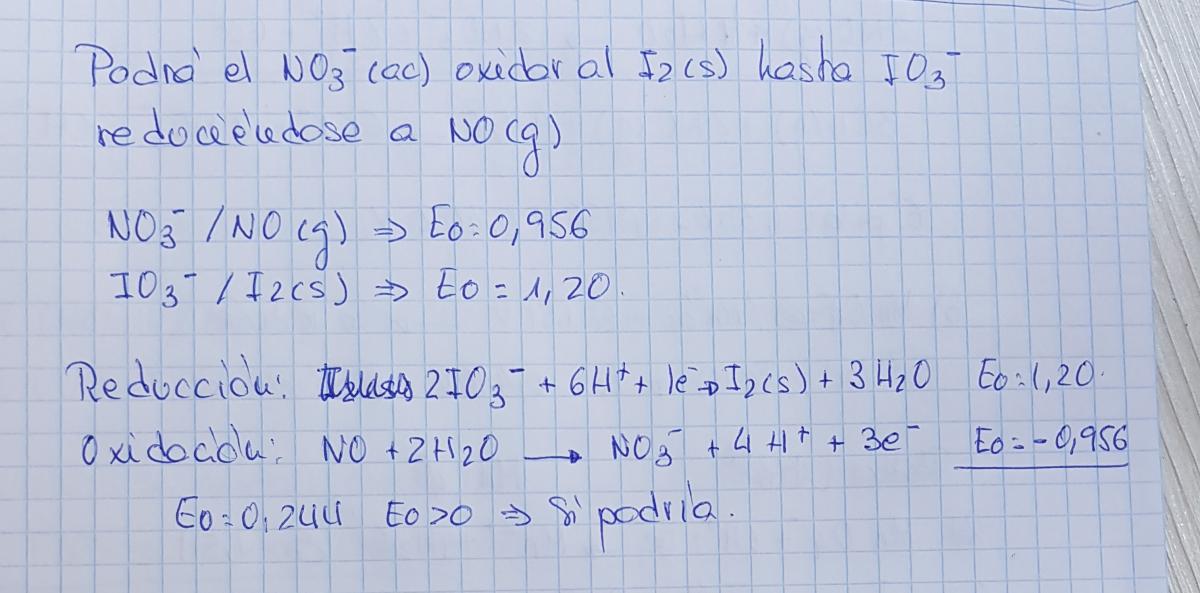 Podrá el NO3⁻ (ac) oxidar al I2(s) hasta IO3⁻
reduciéndose a NO(g)
NO3⁻ / NO (g) ⇒ Eo=0,956
IO3⁻ / I2(s) ⇒ Eo = 1,20.
Reducción: 2IO3⁻ + 6H⁺ + 1e⁻→ I2(s) + 3H2O Eo=1,20.
Oxidación: NO + 2H2O → NO3⁻ + 4H⁺ + 3e⁻ Eo=-0,956
Eo=0,244 Eo>0 ⇒ Si podría.